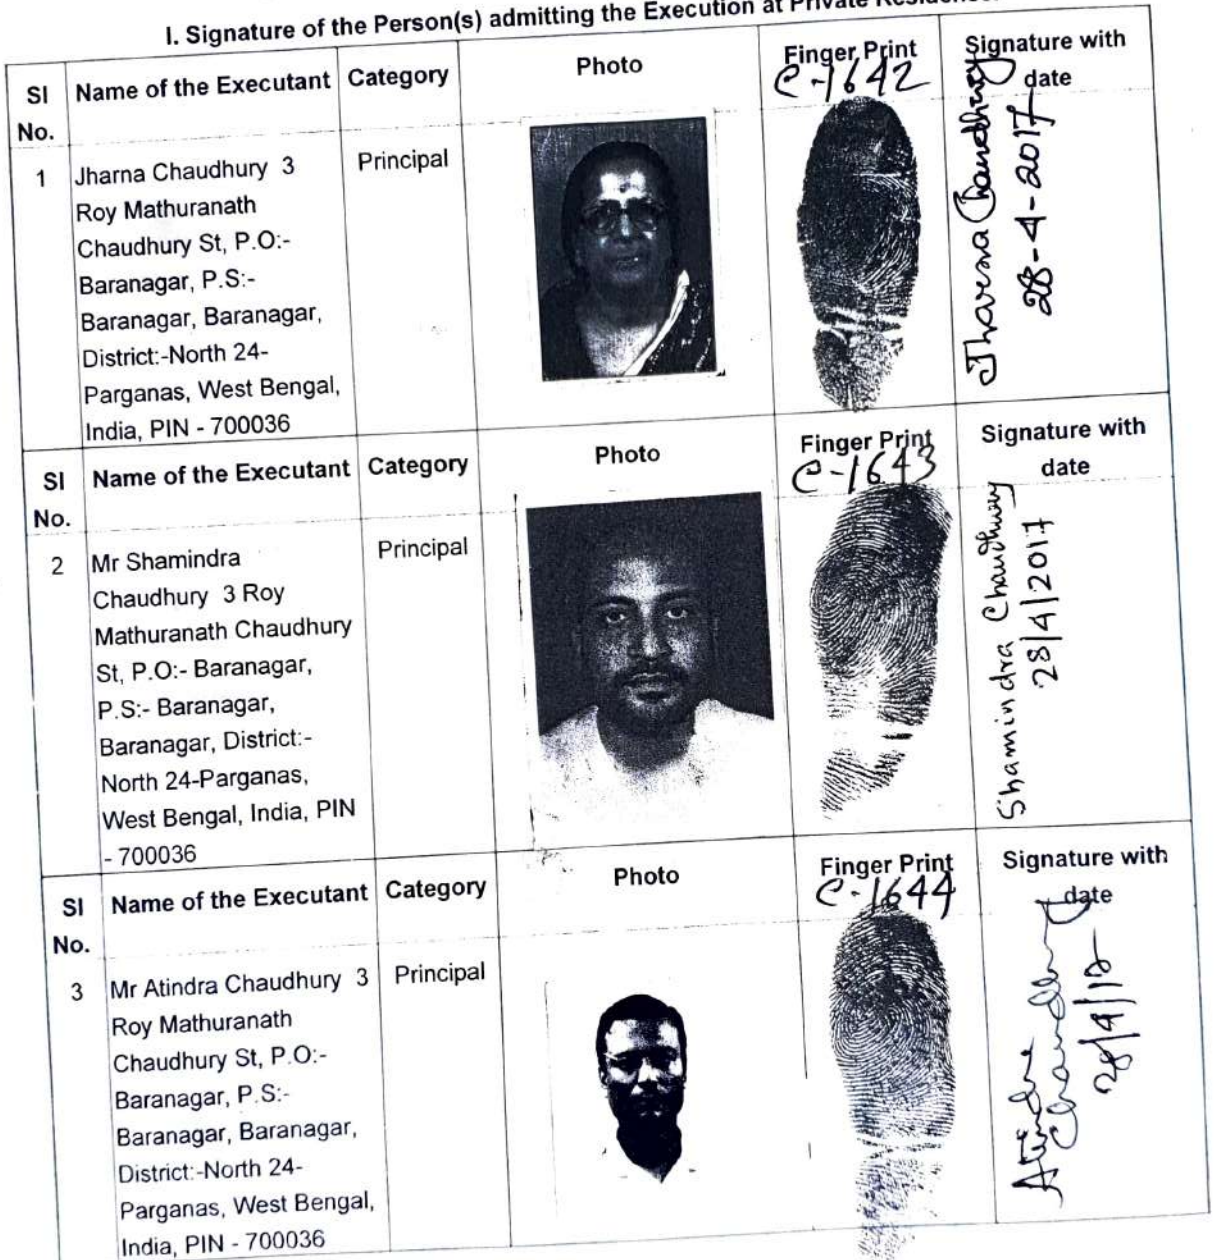 I. Signature of the Person(s) admitting the Execution at Private Residence.
Sl No. Name of the Executant Category Photo Finger Print Signature with date
C-1642
1 Jharna Chaudhury 3 Principal
Roy Mathuranath
Chaudhury St, P.O:-
Baranagar, P.S:-
Baranagar, Baranagar,
District:-North 24-
Parganas, West Bengal,
India, PIN - 700036
Jharna Chaudhury
28-4-2017
Sl No. Name of the Executant Category Photo Finger Print Signature with date
C-1643
2 Mr Shamindra Principal
Chaudhury 3 Roy
Mathuranath Chaudhury
St, P.O:- Baranagar,
P.S:- Baranagar,
Baranagar, District:-
North 24-Parganas,
West Bengal, India, PIN
- 700036
Shamindra Chaudhury
28/4/2017
Sl No. Name of the Executant Category Photo Finger Print Signature with date
C-1644
3 Mr Atindra Chaudhury 3 Principal
Roy Mathuranath
Chaudhury St, P.O:-
Baranagar, P.S:-
Baranagar, Baranagar,
District:-North 24-
Parganas, West Bengal,
India, PIN - 700036
Atindra
Chaudhury
28/4/17